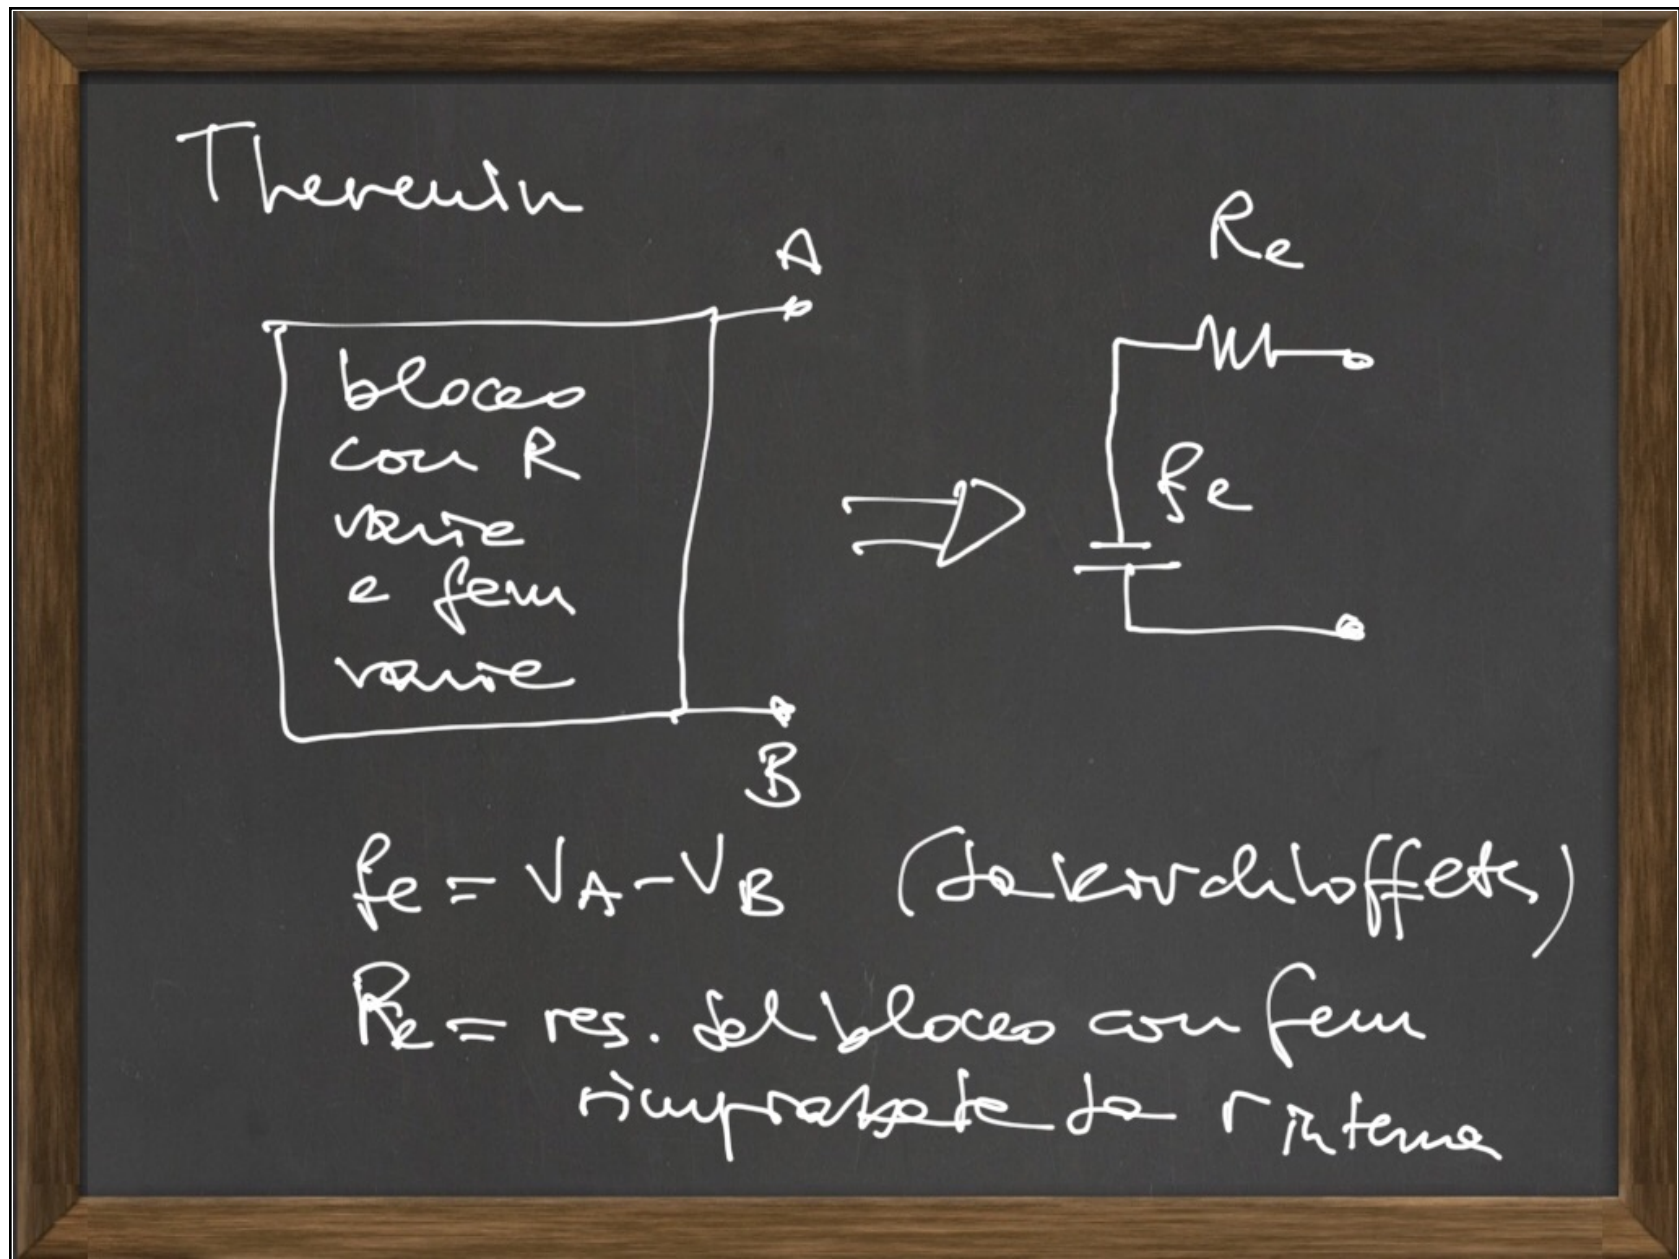 Thevenin
A
Re
blocco
con R
varie
e fem
varie
fe
B
fe = VA - VB (da kirchhoffata)
Re = res. del blocco con fem
rimpiazzate da r interna